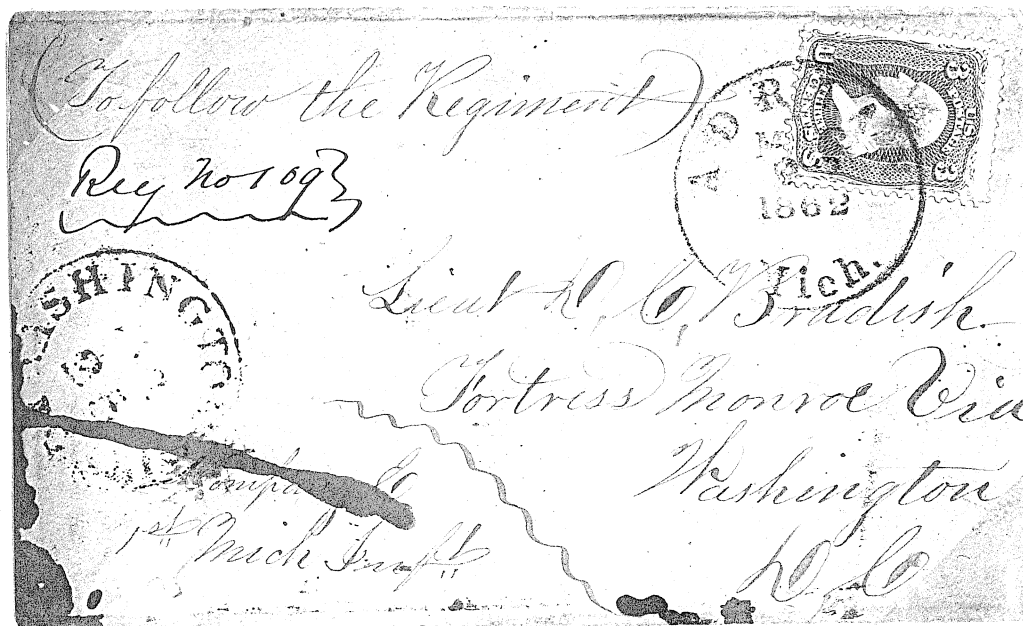 (To follow the Regiment)
Reg No 109
ADR
1862
Mich.
U 3
U.S. 3
WASHINGTO
Lieut D. C. Bradish
Fortress Monroe Via
Washington
D. C
Company
1st Mich Inft